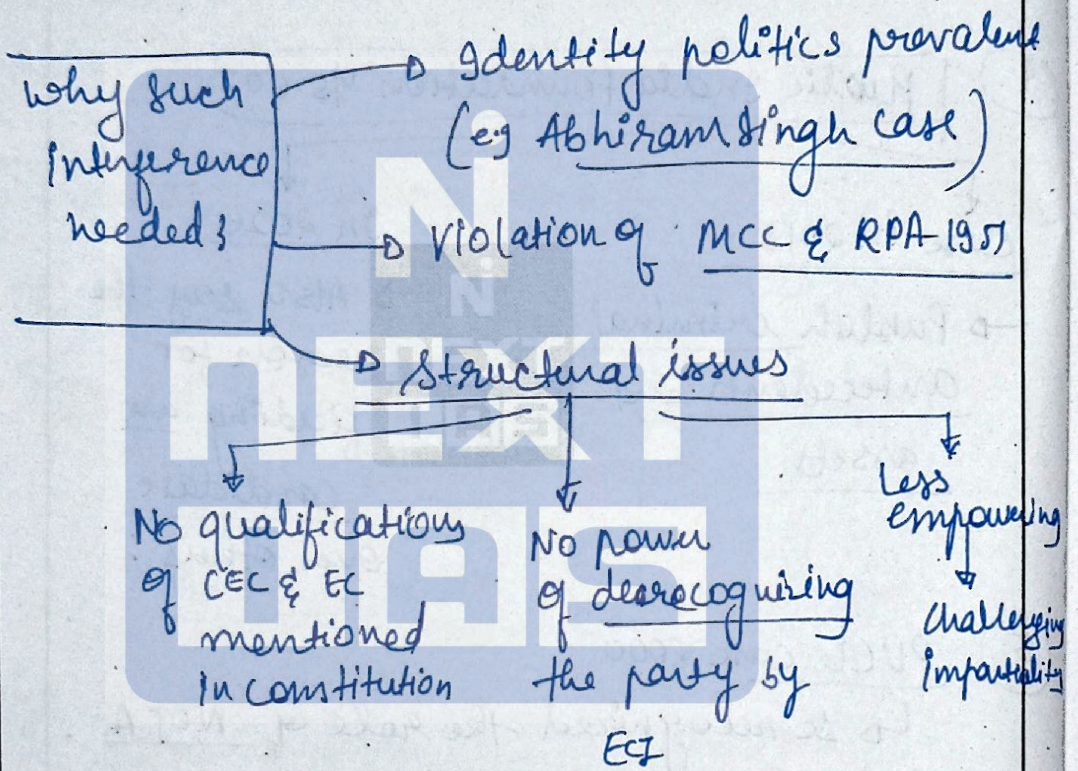 why such
interference
needed?
Identity politics prevalent
(eg Abhiram Singh Case)
Violation of MCC & RPA-1951
Structural issues
No qualifications
of CEC & EC
mentioned
in constitution
No power
of derecognizing
the party by
ECI
Less
empowering
Challenging
impartiality
Ni
NEXT
IAS